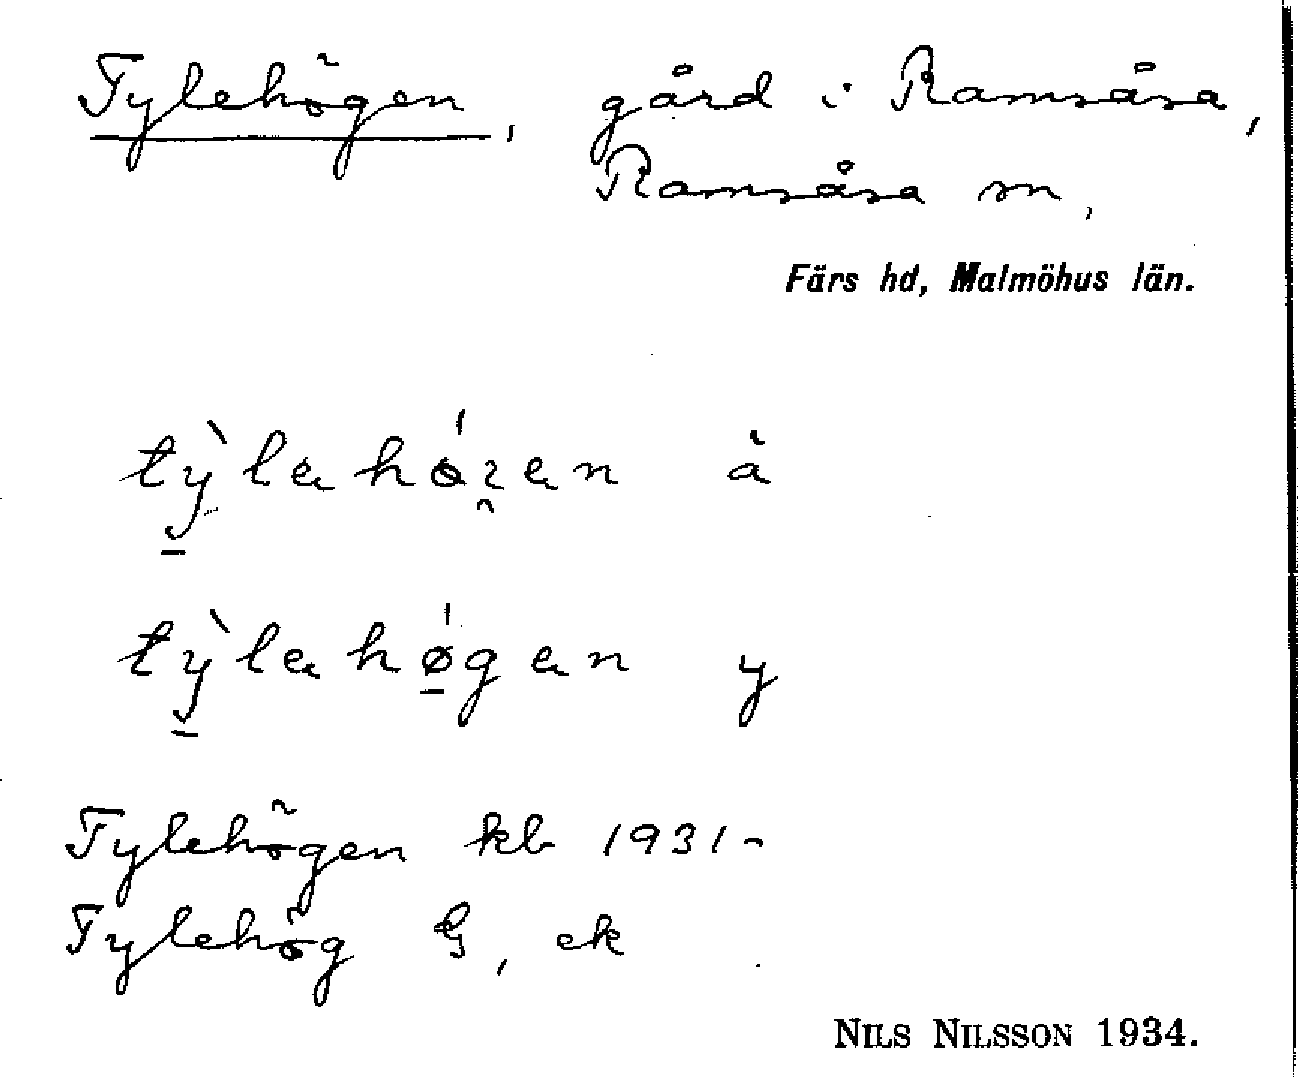 Tylehögen, gård i Ramsåsa,
Ramsåsa sn,
Färs hd, Malmöhus län.
tỳlahǿzan å
tỳlahǿgan y
Tylehögen kb 1931-
Tylehög G, ek
NILS NILSSON 1934.